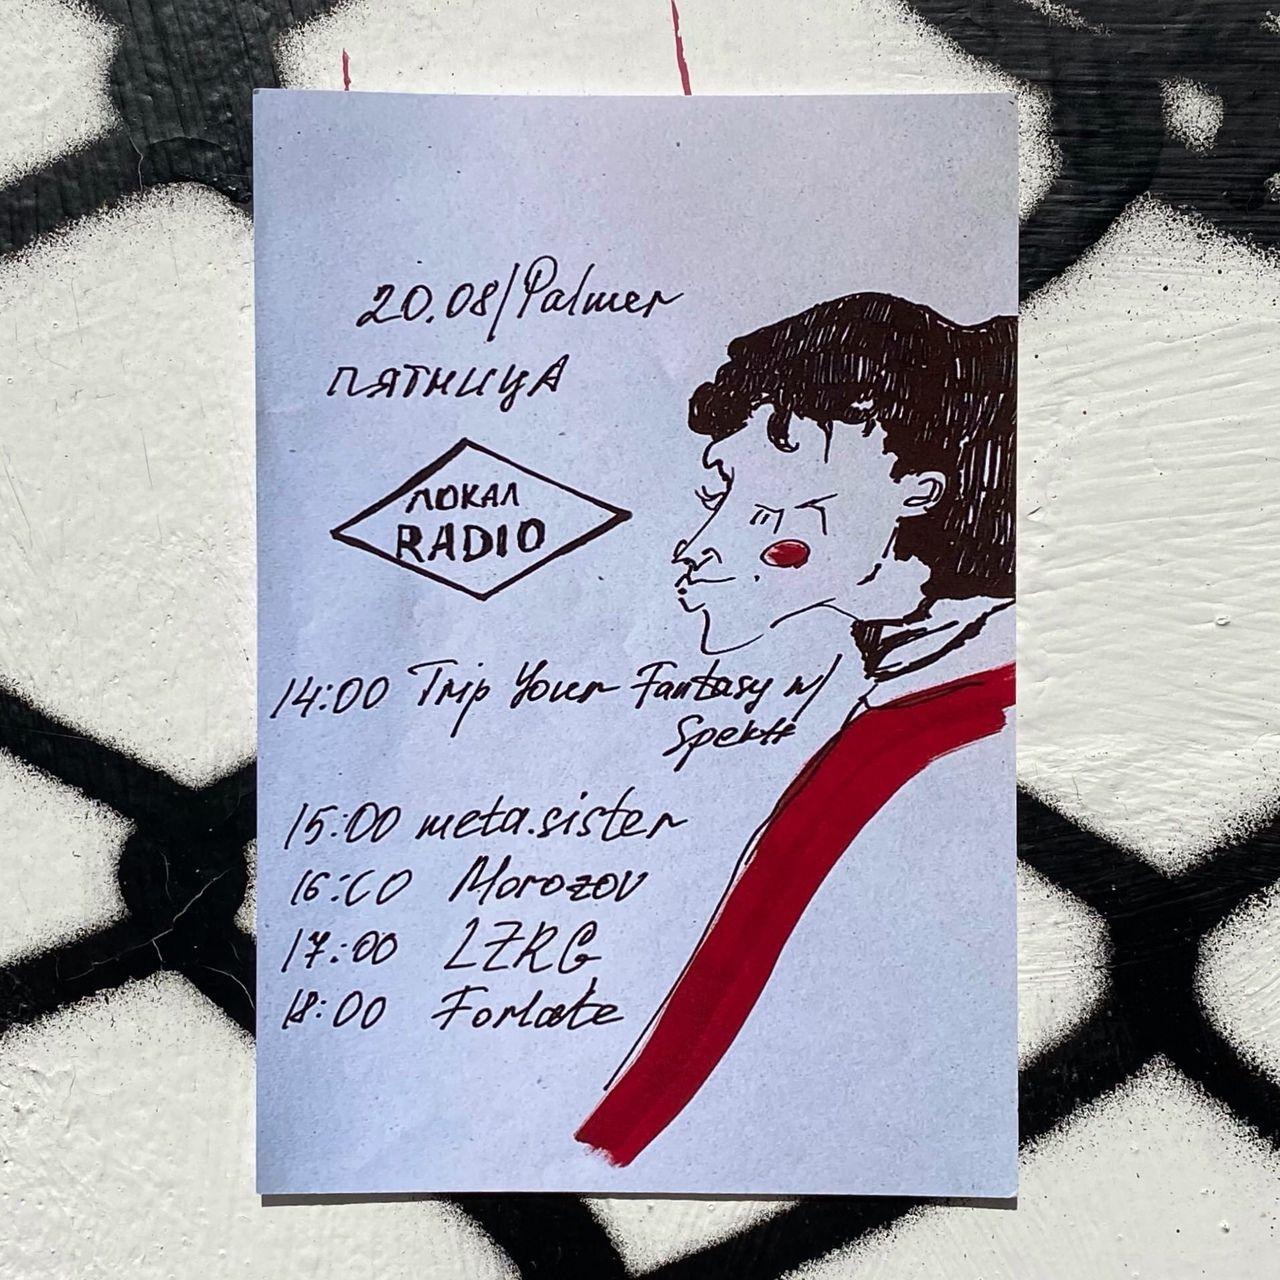 20.08/Palmer
ПЯТНИЦА
ЛОКАЛ
RADIO
14:00 Trip Your Fantasy w/
Spektt
15:00 meta.sister
16:00 Morozov
17:00 LZRG
18:00 Forlate